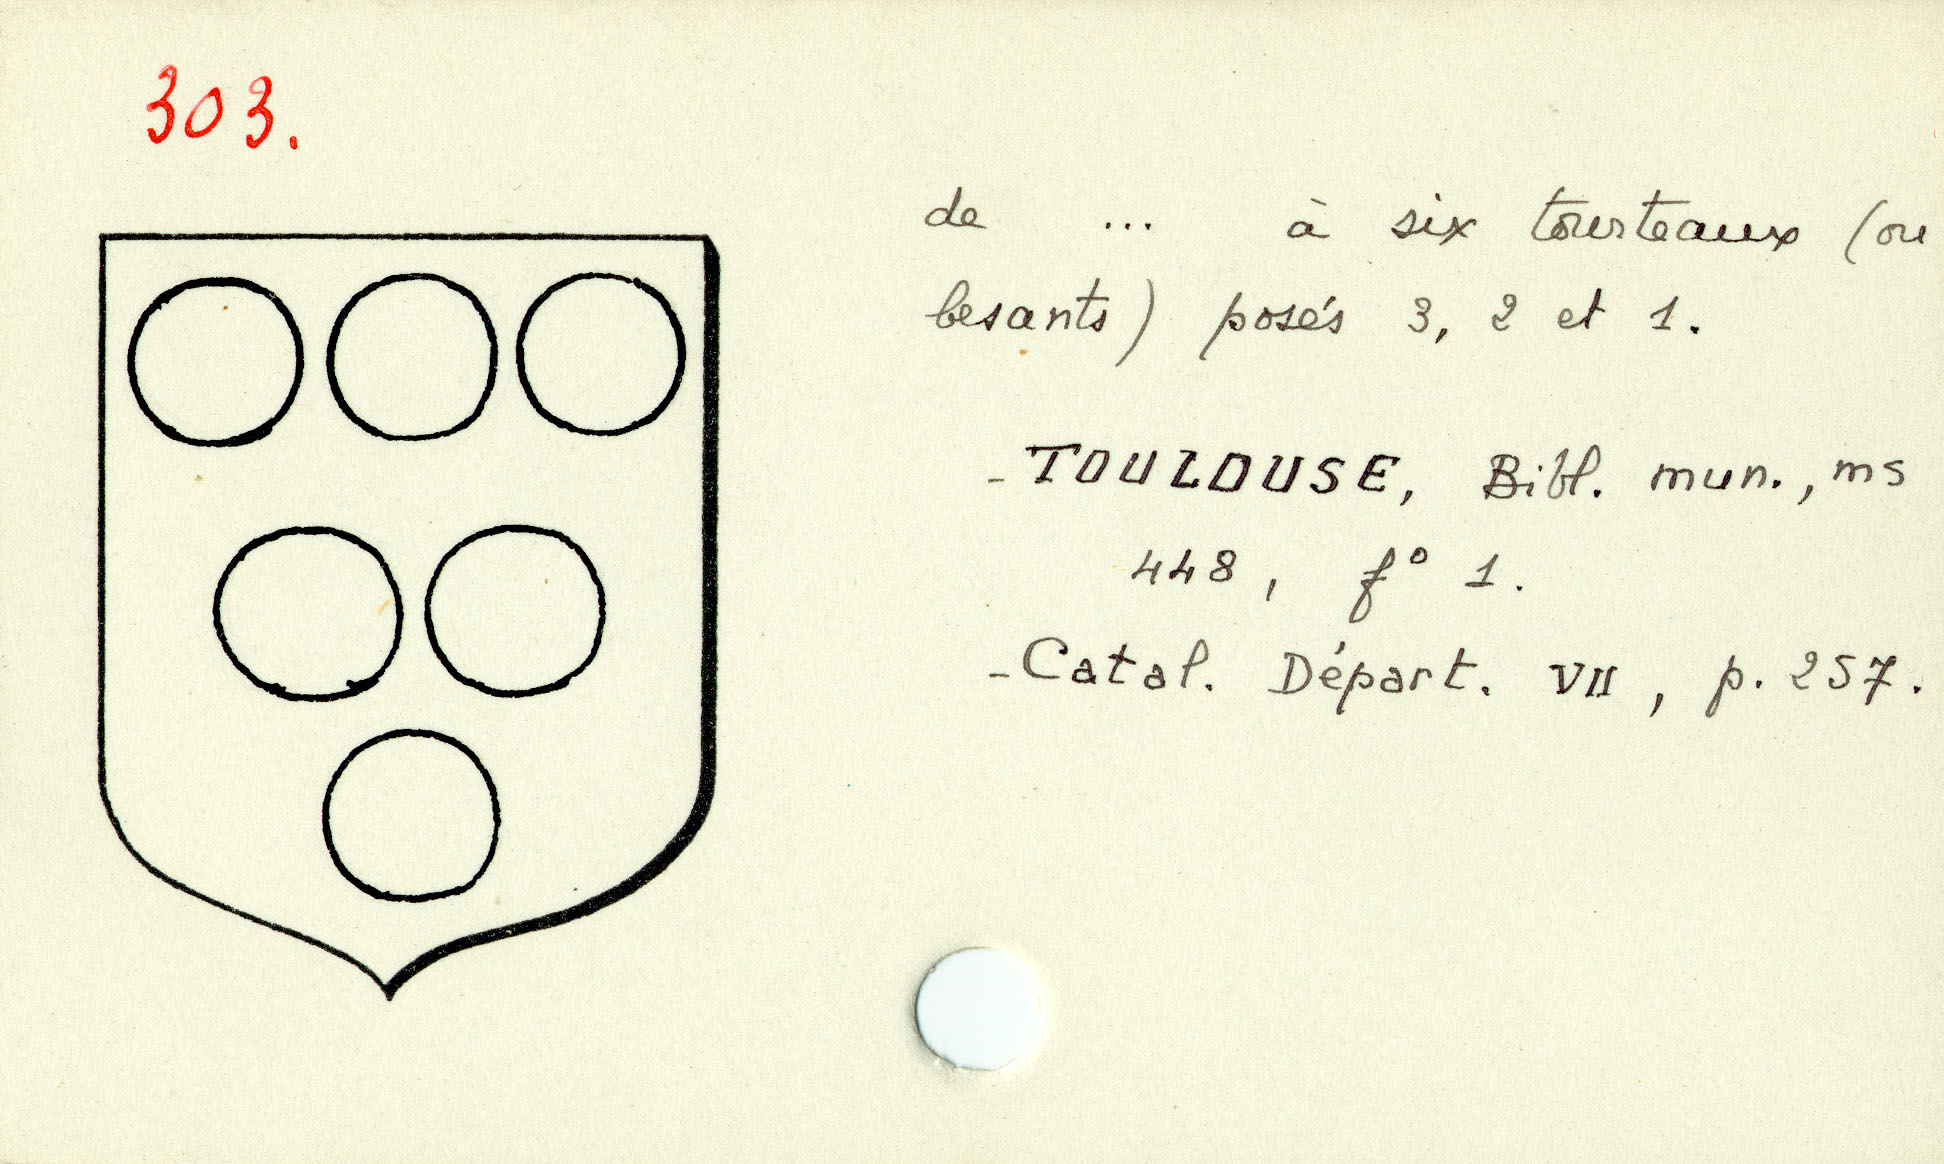 303.
de ... à six tourteaux (ou
besants) posés 3, 2 et 1.
- TOULOUSE, Bibl. mun., ms
448, f° 1.
- Catal. Départ. VII, p. 257.